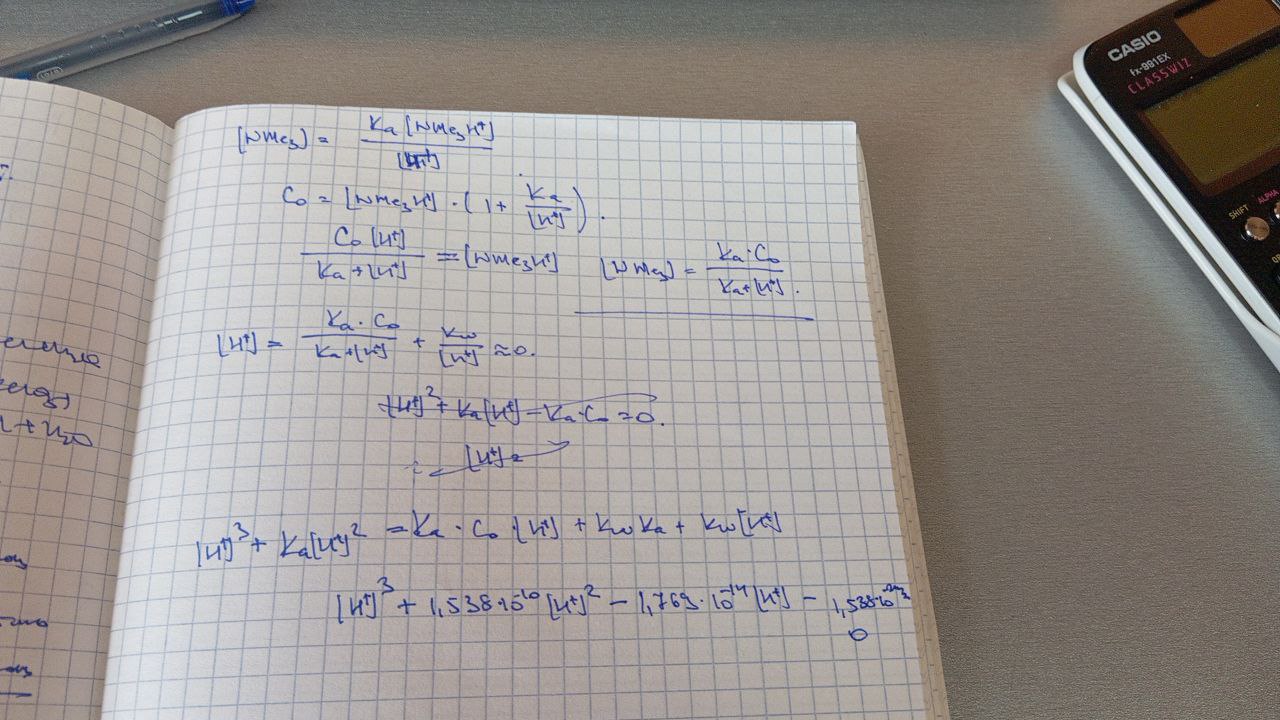 [NMe₃] = Ka [NMe₃H⁺] / [H⁺]
C₀ = [NMe₃H⁺] · (1 + Ka / [H⁺]).
C₀ [H⁺] / Ka + [H⁺] = [NMe₃H⁺]
[NMe₃] = Ka · C₀ / Ka + [H⁺].
[H⁺] = Ka · C₀ / Ka + [H⁺] + Kw / [H⁺] ≈ 0.
[H⁺]² + Ka[H⁺] − Ka · C₀ = 0.
[H⁺] =
[H⁺]³ + Ka[H⁺]² = Ka · C₀ · [H⁺] + Kw Ka + Kw [H⁺]
[H⁺]³ + 1,538·10⁻¹⁰ [H⁺]² − 1,769·10⁻¹⁴ [H⁺] −
0
CASIO
fx-991EX
CLASSWIZ
SHIFT
ALPHA